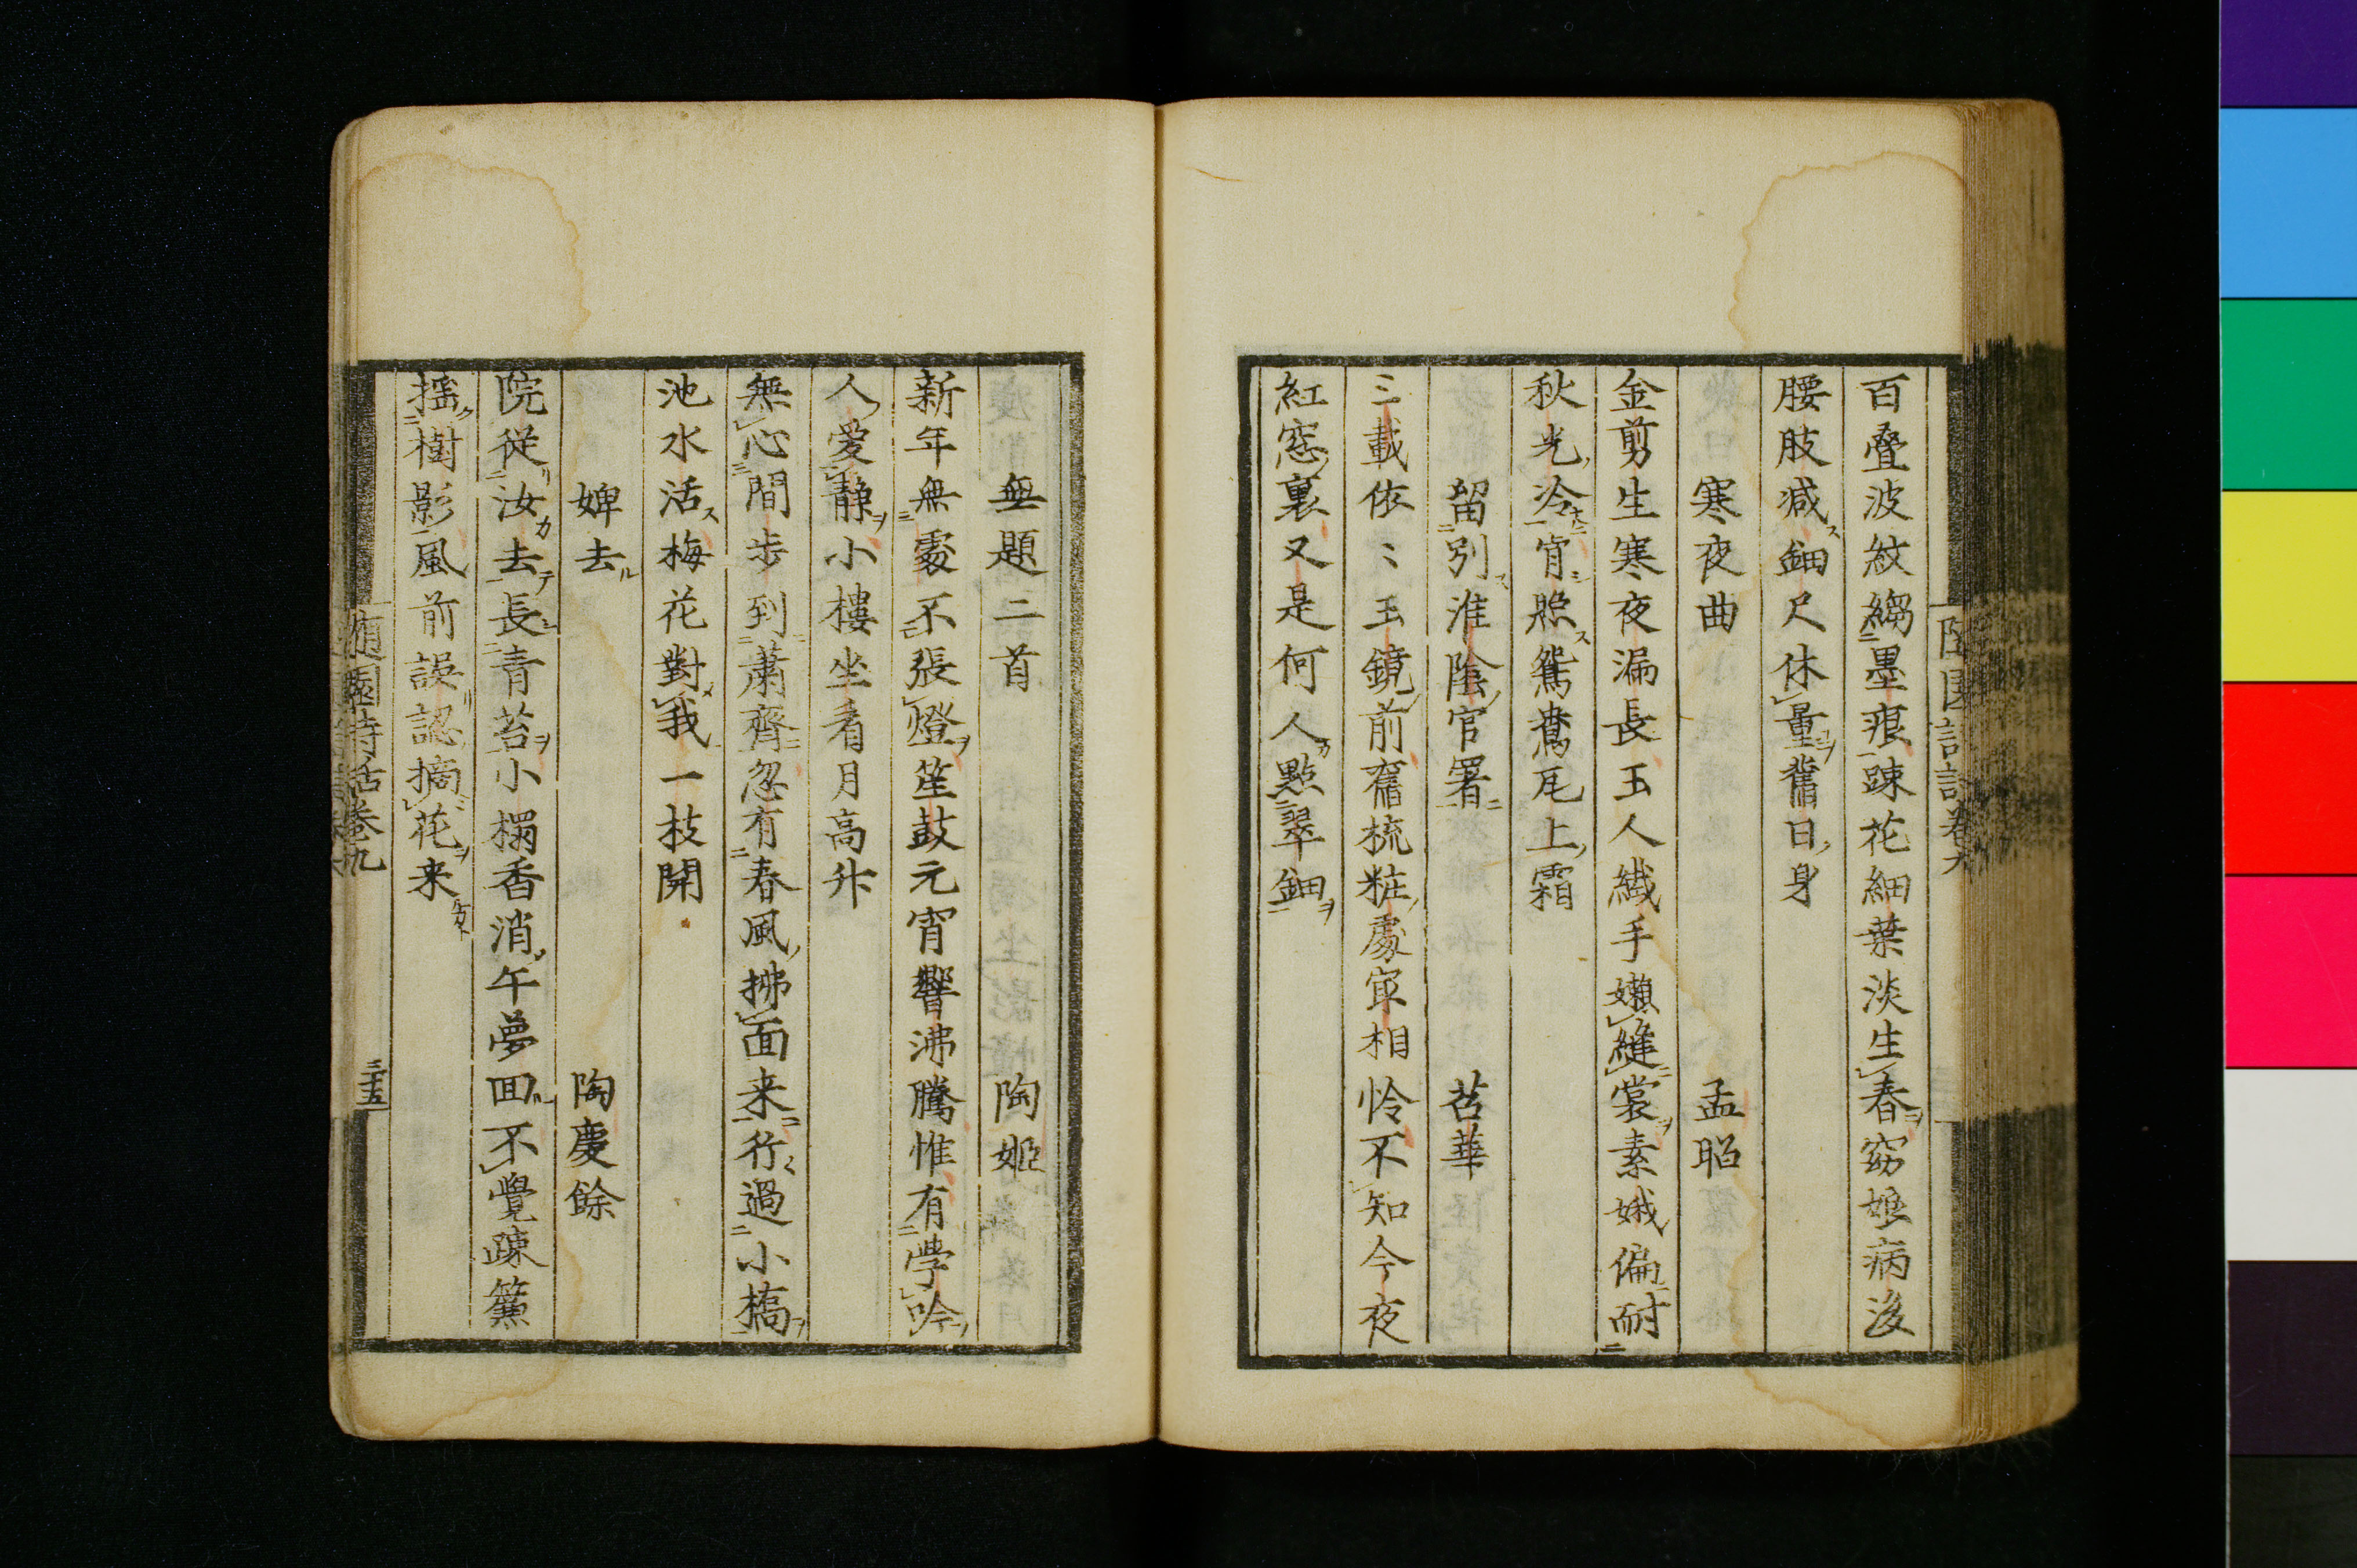 百疊波紋縐墨痕疎花細葉淡生春窈娘病後
腰肢減鈿尺休量舊日身
寒夜曲 孟昭
金剪生寒夜漏長玉人纎手嬾縫裳素娥偏耐
秋光冷肯照鴛鴦瓦上霜
留別淮陰官署 苕華
三載依〻玉鏡前舊梳粧處寔相怜不知今夜
紅窓裏又是何人點翠鈿
無題二首 陶姬
新年無處不張燈笙鼓元宵響沸騰惟有學吟
人愛静小樓坐看月高升
無心間步到蕭齊忽有春風拂面来行過小橋
池水活梅花對我一枝開
婢去 陶慶餘
院従汝去長青苔小榻香消午夢回不覺疎簾
揺樹影風前誤認摘花来
随園詩話巻九
三十五